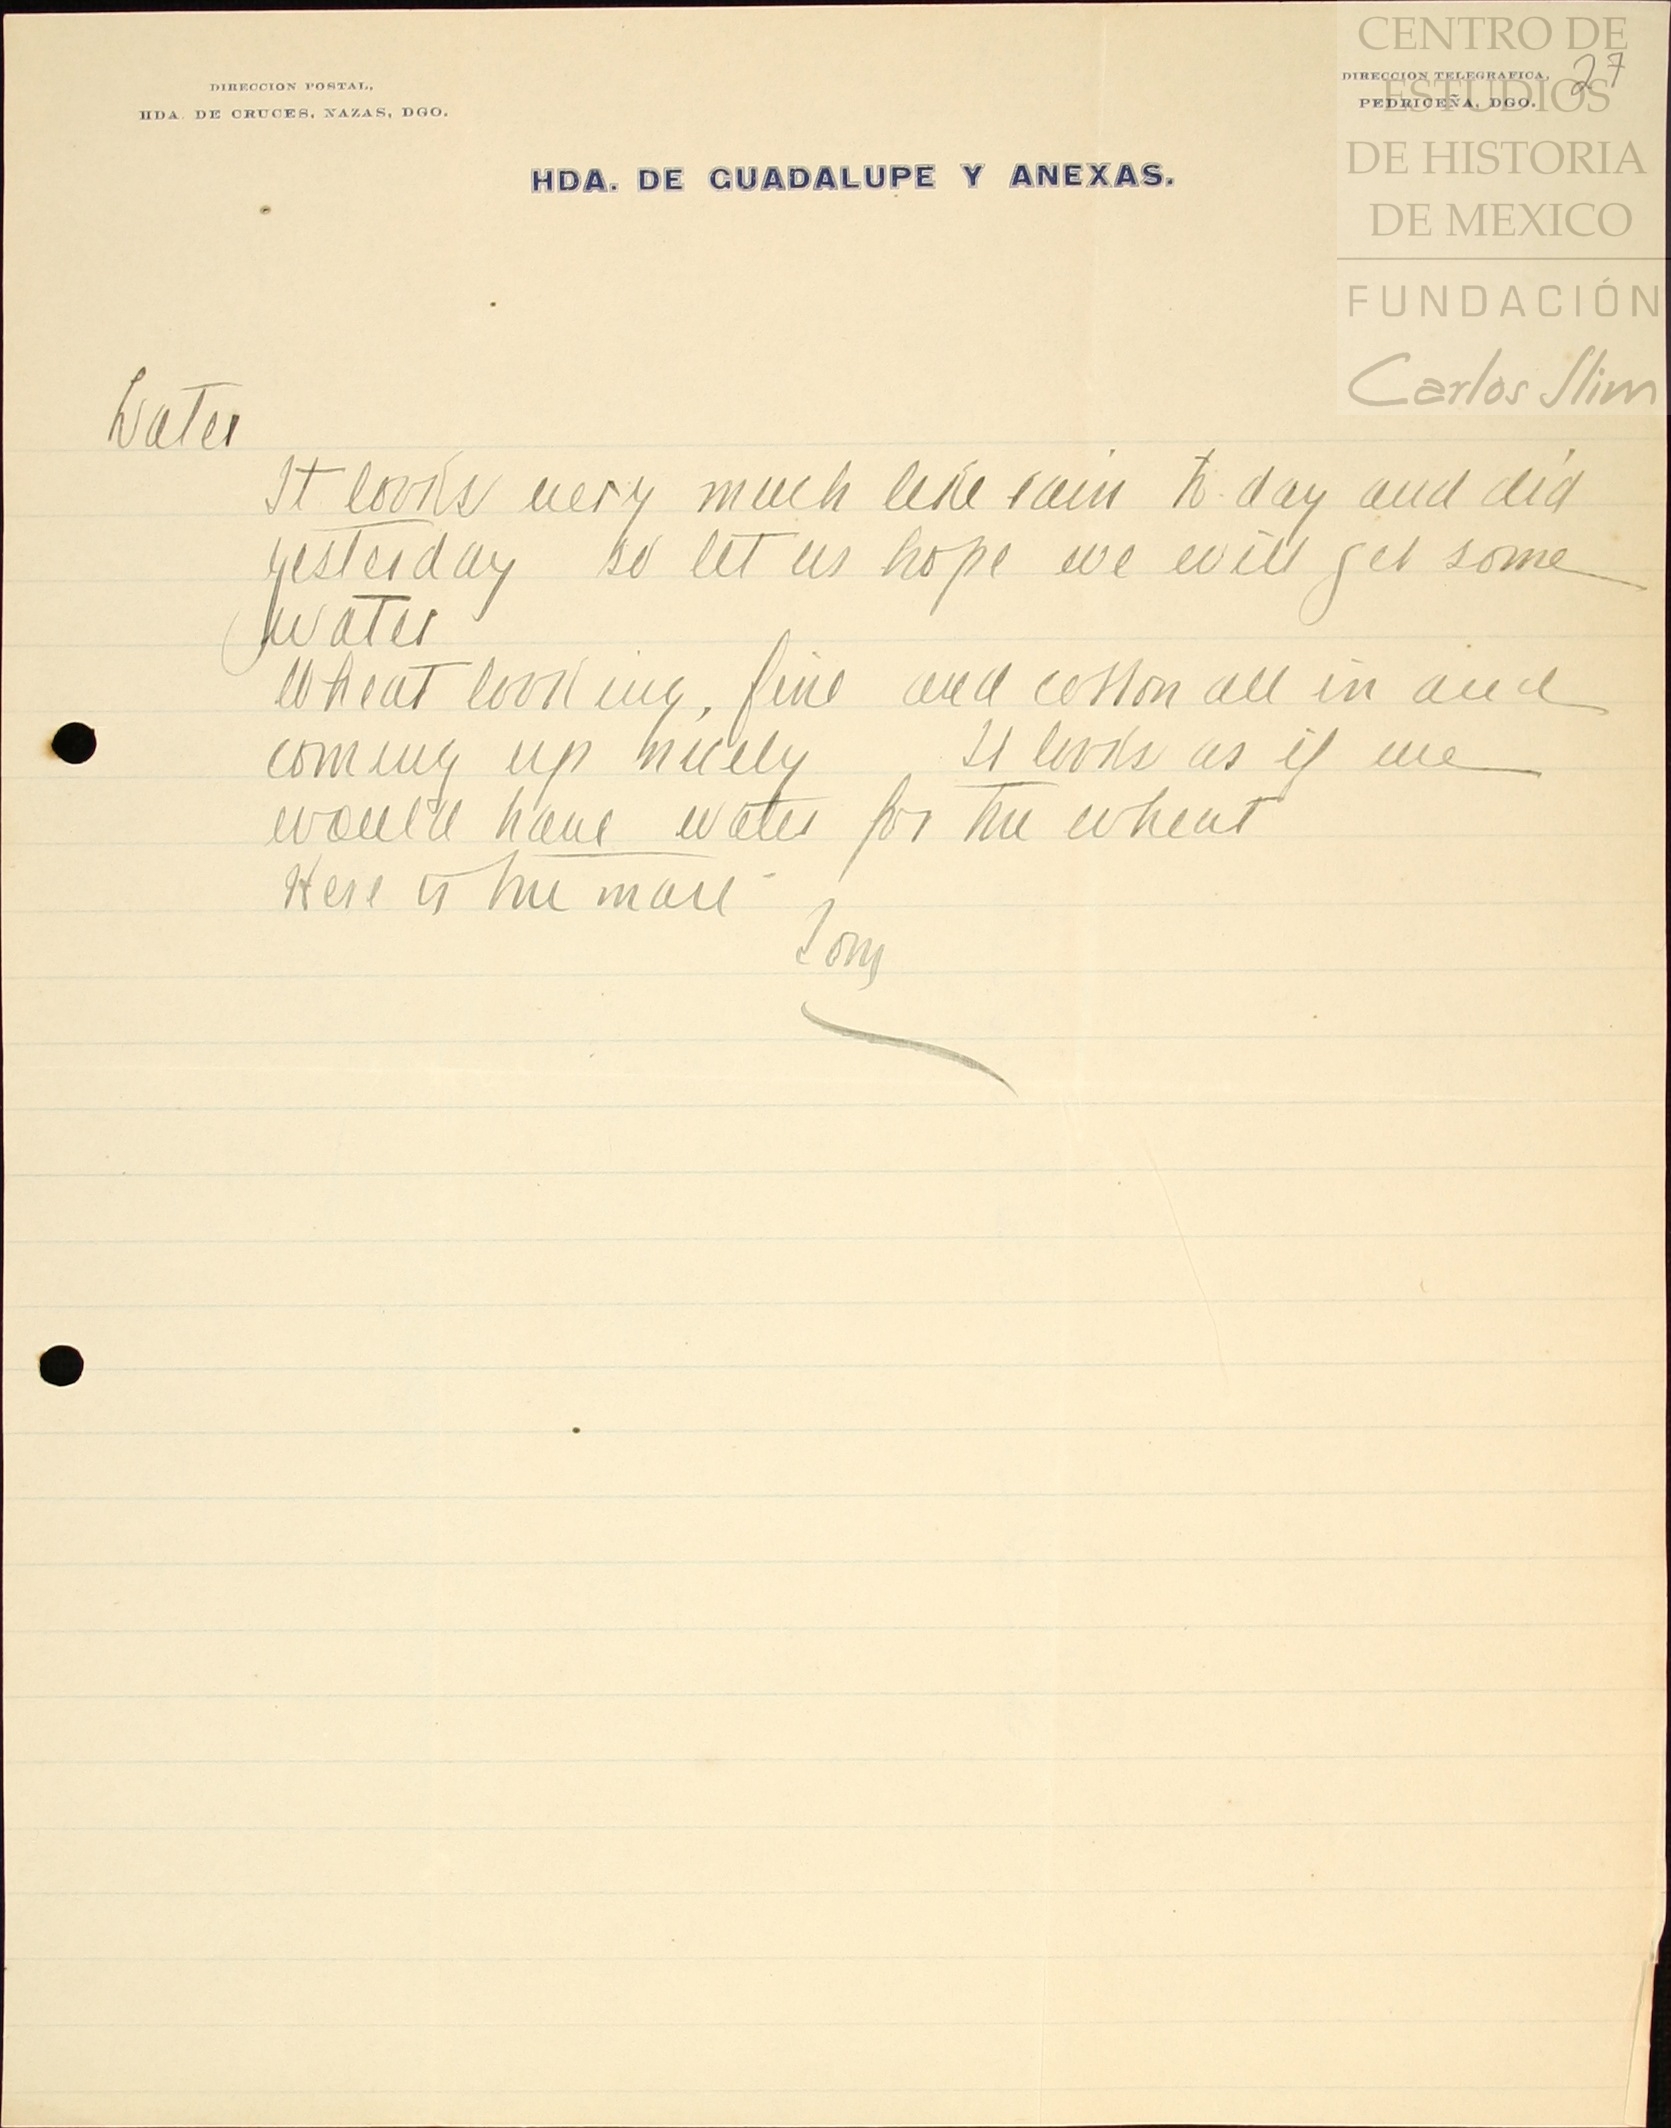 CENTRO DE
ESTUDIOS
DE HISTORIA
DE MEXICO
FUNDACIÓN
Carlos Slim
27
DIRECCION POSTAL,
HDA. DE CRUCES, NAZAS, DGO.
DIRECCION TELEGRAFICA,
PEDRICEÑA, DGO.
HDA. DE GUADALUPE Y ANEXAS.
Water
It looks very much like rain to-day and did
yesterday so let us hope we will get some
water
Wheat looking, fine and cotton all in and
coming up nicely It looks as if we
would have water for the wheat
Here is the mail-